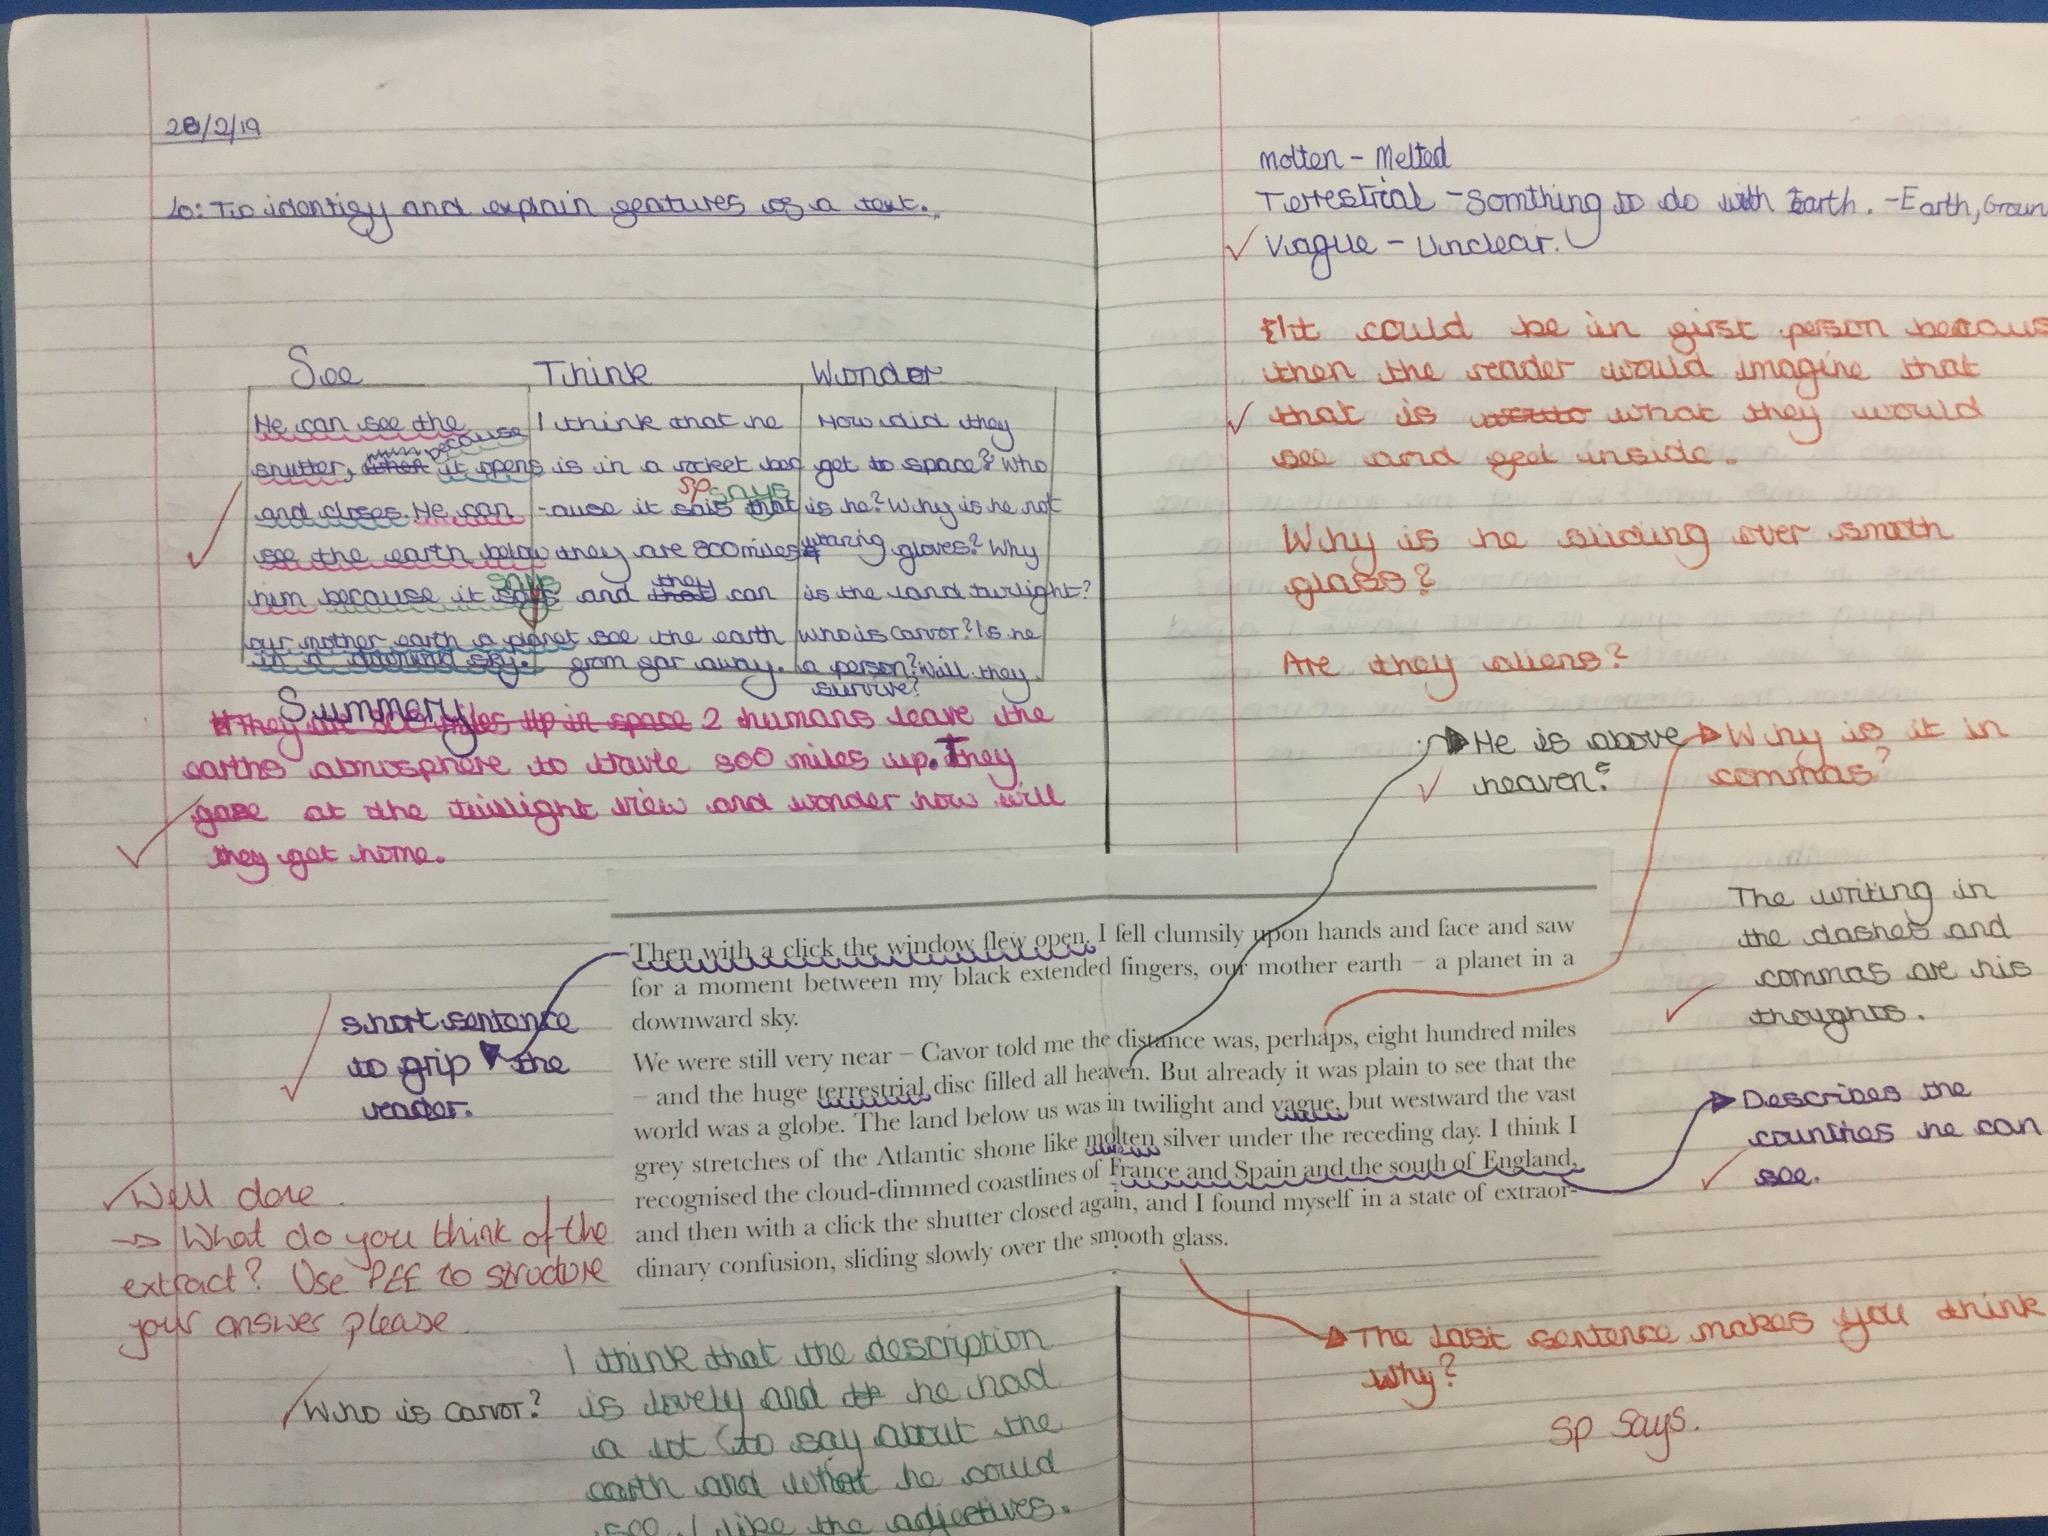 28/2/19
Lo: To identify and explain features of a text.
See Think Wonder
He can see the
shutter, when because it opens
and closes. He can
see the earth below
him because it says
our mother earth a planet
in a downward sky.
I think that he
is in a rocket bec
-ause it sais that
sp says
they are 800 miles
and that they can
see the earth
from far away.
How did they
get to space? Who
is he? Why is he not
wearing gloves? Why
is the land twilight?
Who is Carvor? Is he
a person? Will they
survive?
Summery
They are 800 miles up in space 2 humans leave the
earths atmosphere to travle 800 miles up. They
gaze at the twilight view and wonder how will
they get home.
short sentence
to grip the
reader.
Well done.
→ What do you think of the
extract? Use PEE to structure
your answer please.
Who is Carvor?
I think that the description
is lovely and he had
a lot to say about the
earth and what he could
see. I like the adjectives.
Molten - Melted
Terrestrial - Somthing to do with Earth. - Earth, Groun
Vague - Unclear.
It could be in first person becaus
then the reader would imagine that
that is what they would
see and feel inside.
Why is he sliding over smoth
glass?
Are they aliens?
He is above
heaven?
Why is it in
commas?
The writing in
the dashes and
commas are his
thoughts.
Describes the
countries he can
see.
Then with a click the window flew open. I fell clumsily upon hands and face and saw
for a moment between my black extended fingers, our mother earth – a planet in a
downward sky.
We were still very near – Cavor told me the distance was, perhaps, eight hundred miles
– and the huge terrestrial disc filled all heaven. But already it was plain to see that the
world was a globe. The land below us was in twilight and vague, but westward the vast
grey stretches of the Atlantic shone like molten silver under the receding day. I think I
recognised the cloud-dimmed coastlines of France and Spain and the south of England,
and then with a click the shutter closed again, and I found myself in a state of extraor-
dinary confusion, sliding slowly over the smooth glass.
The last sentence makes you think
why?
sp says.